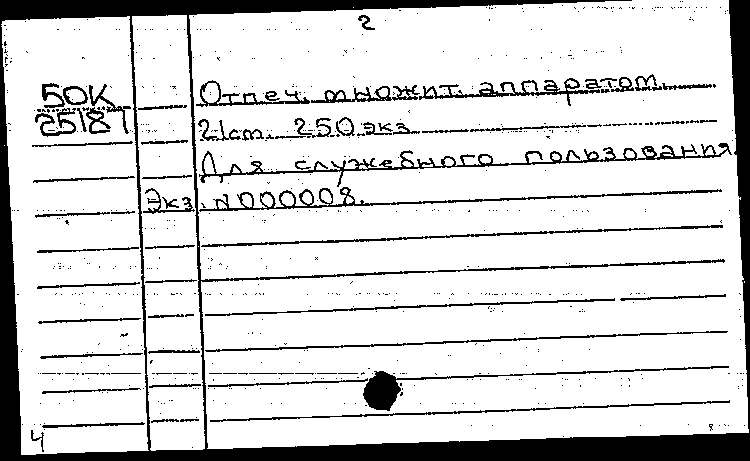 2
50К Отпеч. множит. аппаратом.
25187 21cm. 250 экз
Для служебного пользования
Экз. N000008.
4